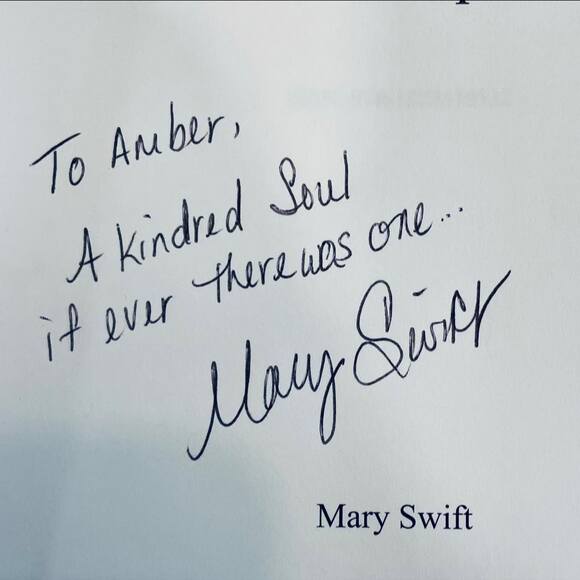 To Amber,
A kindred Soul
if ever there was one...
Mary Swift
Mary Swift